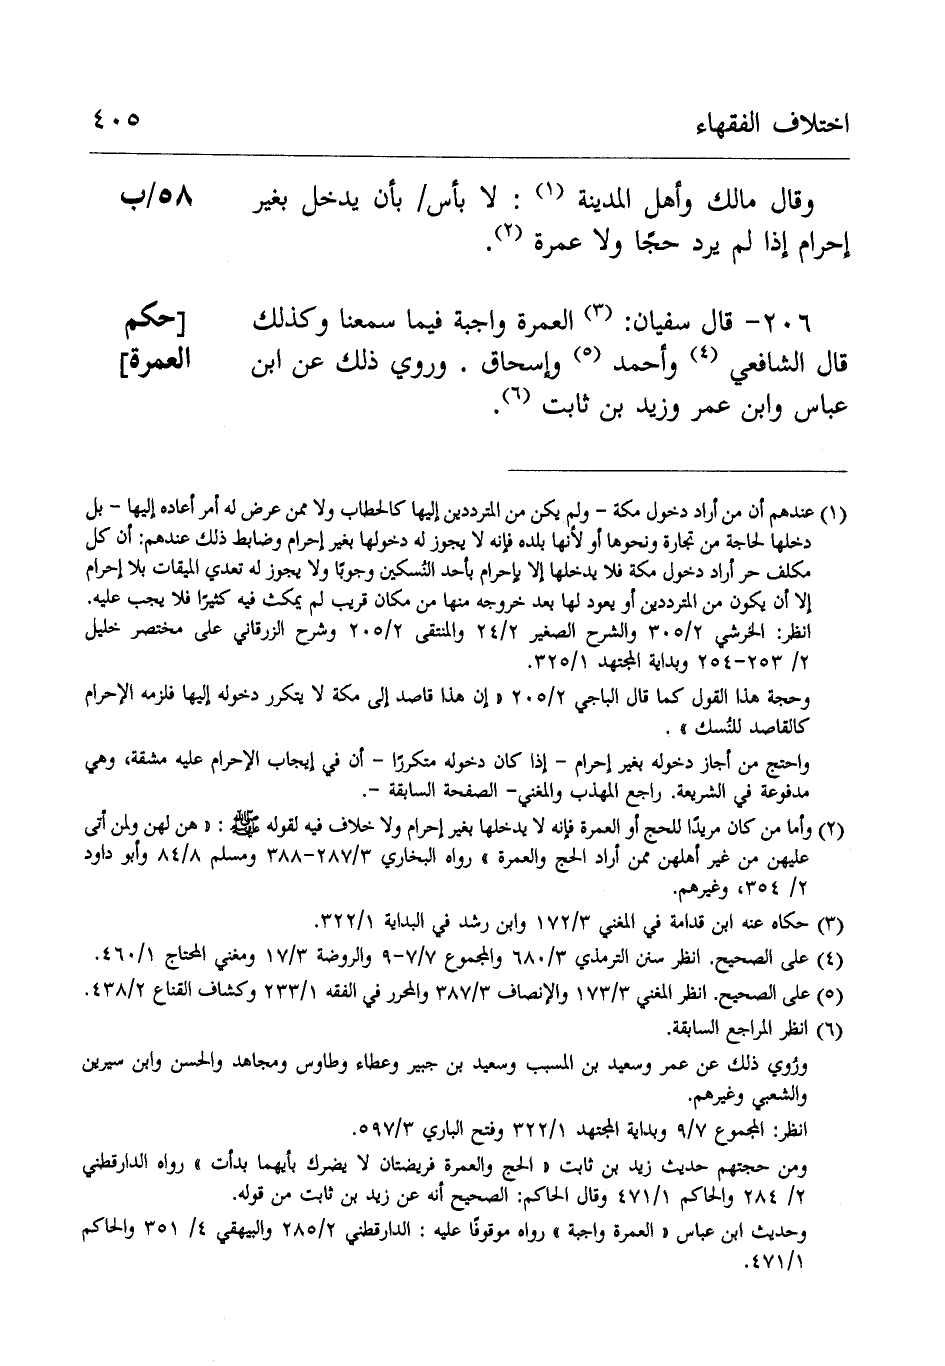 اختلاف الفقهاء ٤٠٥
وقال مالك وأهل المدينة (١) : لا بأس/ بأن يدخل بغير ٥٨/ب
إحرام إذا لم يرد حجًا ولا عمرة (٢).
٢٠٦- قال سفيان: (٣) العمرة واجبة فيما سمعنا وكذلك [حكم
قال الشافعي (٤) وأحمد (٥) وإسحاق . وروي ذلك عن ابن العمرة]
عباس وابن عمر وزيد بن ثابت (٦).
(١) عندهم أن من أراد دخول مكة - ولم يكن من المترددين إليها كالحطاب ولا ممن عرض له أمر أعاده إليها - بل
دخلها لحاجة من تجارة ونحوها أو لأنها بلده فإنه لا يجوز له دخولها بغير إحرام وضابط ذلك عندهم: أن كل
مكلف حر أراد دخول مكة فلا يدخلها إلا بإحرام بأحد النُسكين وجوبًا ولا يجوز له تعدي الميقات بلا إحرام
إلا أن يكون من المترددين أو يعود لها بعد خروجه منها من مكان قريب لم يمكث فيه كثيرًا فلا يجب عليه.
انظر: الخرشي ٣٠٥/٢ والشرح الصغير ٢٤/٢ والمنتقى ٢٠٥/٢ وشرح الزرقاني على مختصر خليل
٢/ ٢٥٣-٢٥٤ وبداية المجتهد ٣٢٥/١.
وحجة هذا القول كما قال الباجي ٢٠٥/٢ « إن هذا قاصد إلى مكة لا يتكرر دخوله إليها فلزمه الإحرام
كالقاصد للنُسك » .
واحتج من أجاز دخوله بغير إحرام - إذا كان دخوله متكررًا - أن في إيجاب الإحرام عليه مشقة، وهي
مدفوعة في الشريعة. راجع المهذب والمغني- الصفحة السابقة -.
(٢) وأما من كان مريدًا للحج أو العمرة فإنه لا يدخلها بغير إحرام ولا خلاف فيه لقوله ﷺ : « هن لهن ولمن أتى
عليهن من غير أهلهن ممن أراد الحج والعمرة » رواه البخاري ٢٨٧/٣-٣٨٨ ومسلم ٨٤/٨ وأبو داود
٢/ ٣٥٤، وغيرهم.
(٣) حكاه عنه ابن قدامة في المغني ١٧٢/٣ وابن رشد في البداية ٣٢٢/١.
(٤) على الصحيح. انظر سنن الترمذي ٦٨٠/٣ والمجموع ٧/٧-٩ والروضة ١٧/٣ ومغني المحتاج ٤٦٠/١.
(٥) على الصحيح. انظر المغني ١٧٣/٣ والإنصاف ٣٨٧/٣ والمحرر في الفقه ٢٣٣/١ وكشاف القناع ٤٣٨/٢.
(٦) انظر المراجع السابقة.
ورُوي ذلك عن عمر وسعيد بن المسبب وسعيد بن جبير وعطاء وطاوس ومجاهد والحسن وابن سيرين
والشعبي وغيرهم.
انظر: المجموع ٩/٧ وبداية المجتهد ٣٢٢/١ وفتح الباري ٥٩٧/٣.
ومن حجتهم حديث زيد بن ثابت « الحج والعمرة فريضتان لا يضرك بأيهما بدأت » رواه الدارقطني
٢/ ٢٨٤ والحاكم ٤٧١/١ وقال الحاكم: الصحيح أنه عن زيد بن ثابت من قوله.
وحديث ابن عباس « العمرة واجبة » رواه موقوفًا عليه : الدارقطني ٢٨٥/٢ والبيهقي ٤/ ٣٥١ والحاكم
٤٧١/١.